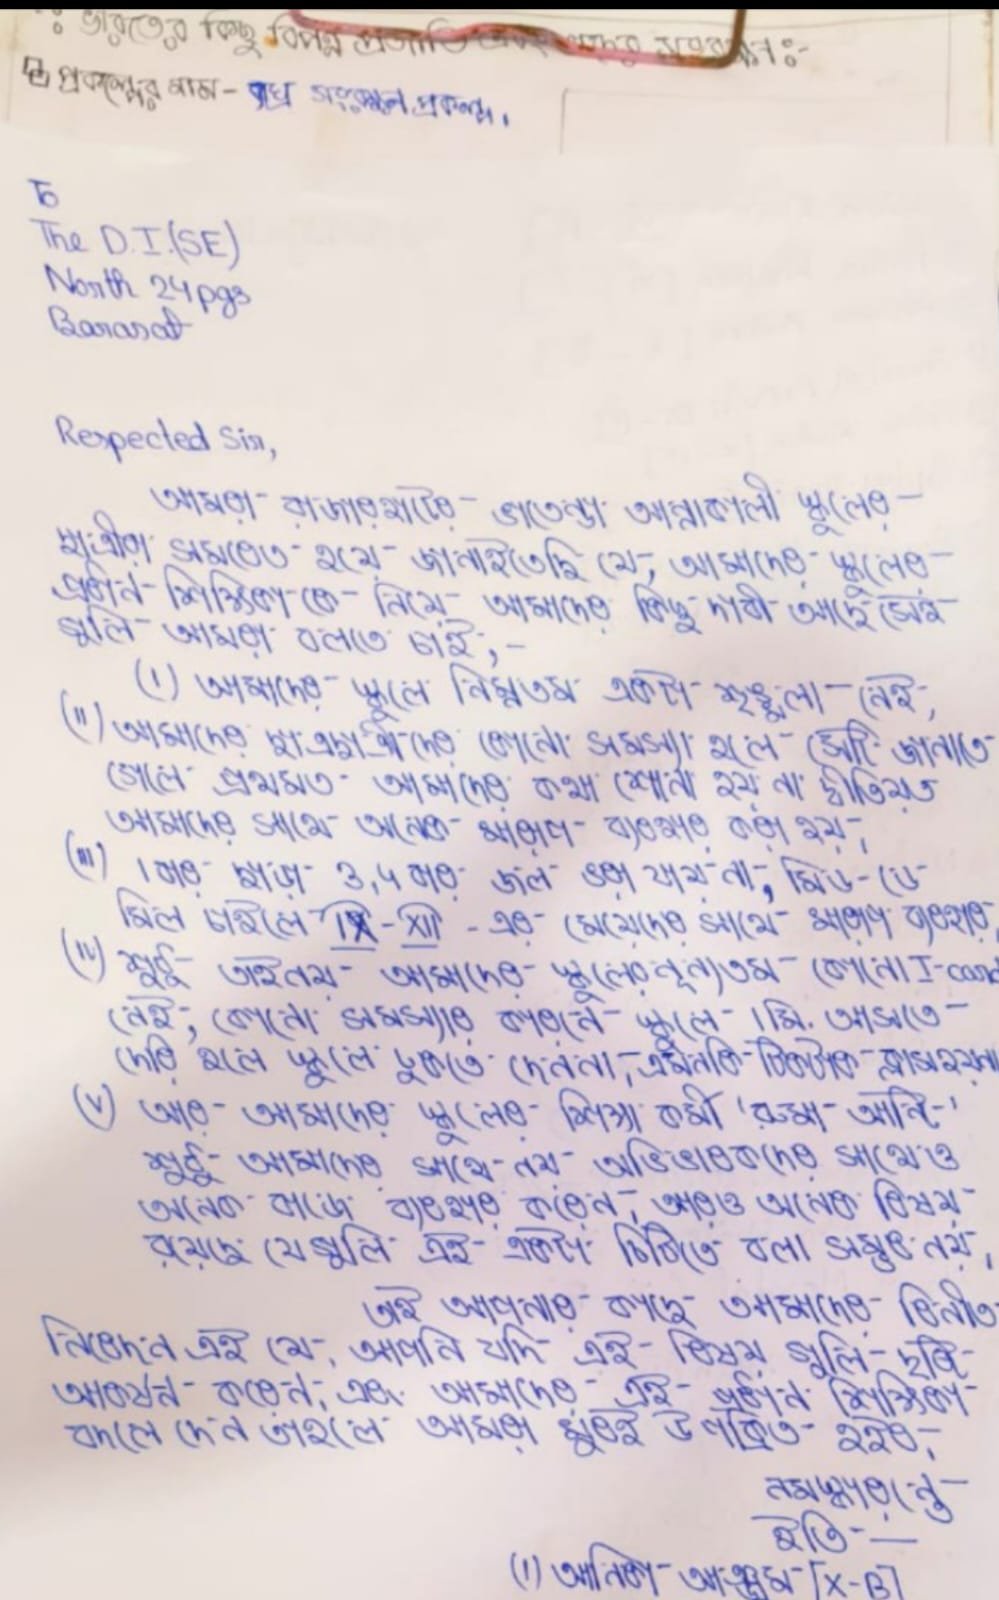 : ভারতের কিছু বিপন্ন প্রজাতি এবং তাদের সংরক্ষণ :-
প্রকল্পের নাম - ব্যাঘ্র সংরক্ষণ প্রকল্প,
To
The D.I.(SE)
North 24 pgs
Barasat
Respected Sir,
আমরা রাজারহাটের ভাতেন্ডা আন্নাকালী স্কুলের
ছাত্রীরা সমবেত হয়ে জানাইতেছি যে, আমাদের স্কুলের
প্রধান শিক্ষিকা কে নিয়ে আমাদের কিছু দাবী আছে সেই
গুলি আমরা বলতে চাই,-
(i) আমাদের স্কুলে নিম্নতম একটা শৃঙ্খলা নেই,
(ii) আমাদের ছাত্রছাত্রীদের কোনো সমস্যা হলে সেটা জানাতে
গেলে প্রথমত আমাদের কথা শোনা হয় না দ্বীতিয়ত
আমাদের সাথে অনেক খারাপ ব্যবহার করা হয়,
(iii) 1 বার ছাড়া 3,4 বার জল ভরা যায় না, মিড-ডে
মিল চাইলে IX - XII - এর মেয়েদের সাথে খারাপ ব্যবহার,
(iv) শুধু তাইনয় আমাদের স্কুলের নূন্যতম কোনো I-card
নেই, কোনো সমস্যার কারনে স্কুলে 1 মি. আসতে
দেরি হলে স্কুলে ঢুকতে দেননা, এমনকি ঠিকঠাক ক্লাস হয়না
(v) আর আমাদের স্কুলের শিক্ষা কর্মী 'রুমা আন্টি'
শুধু আমাদের সাথে নয় অভিভাবকদের সাথে ও
অনেক বাজে ব্যবহার করেন, আরও অনেক বিষয়
রয়েছে যেগুলি এই একটা চিঠিতে বলা সম্ভব নয়,
তাই আপনার কাছে আমাদের বিনীত
নিবেদন এই যে, আপনি যদি এই বিষয় গুলি দৃষ্টি
আকর্ষন করেন, এবং আমাদের এই প্রধান শিক্ষিকা
বদলে দেন তাহলে আমরা খুবই উপক্রিত হইব,
নমস্কারন্তে
ইতি —
(i) আনিকা আঞ্জুম [X-B]